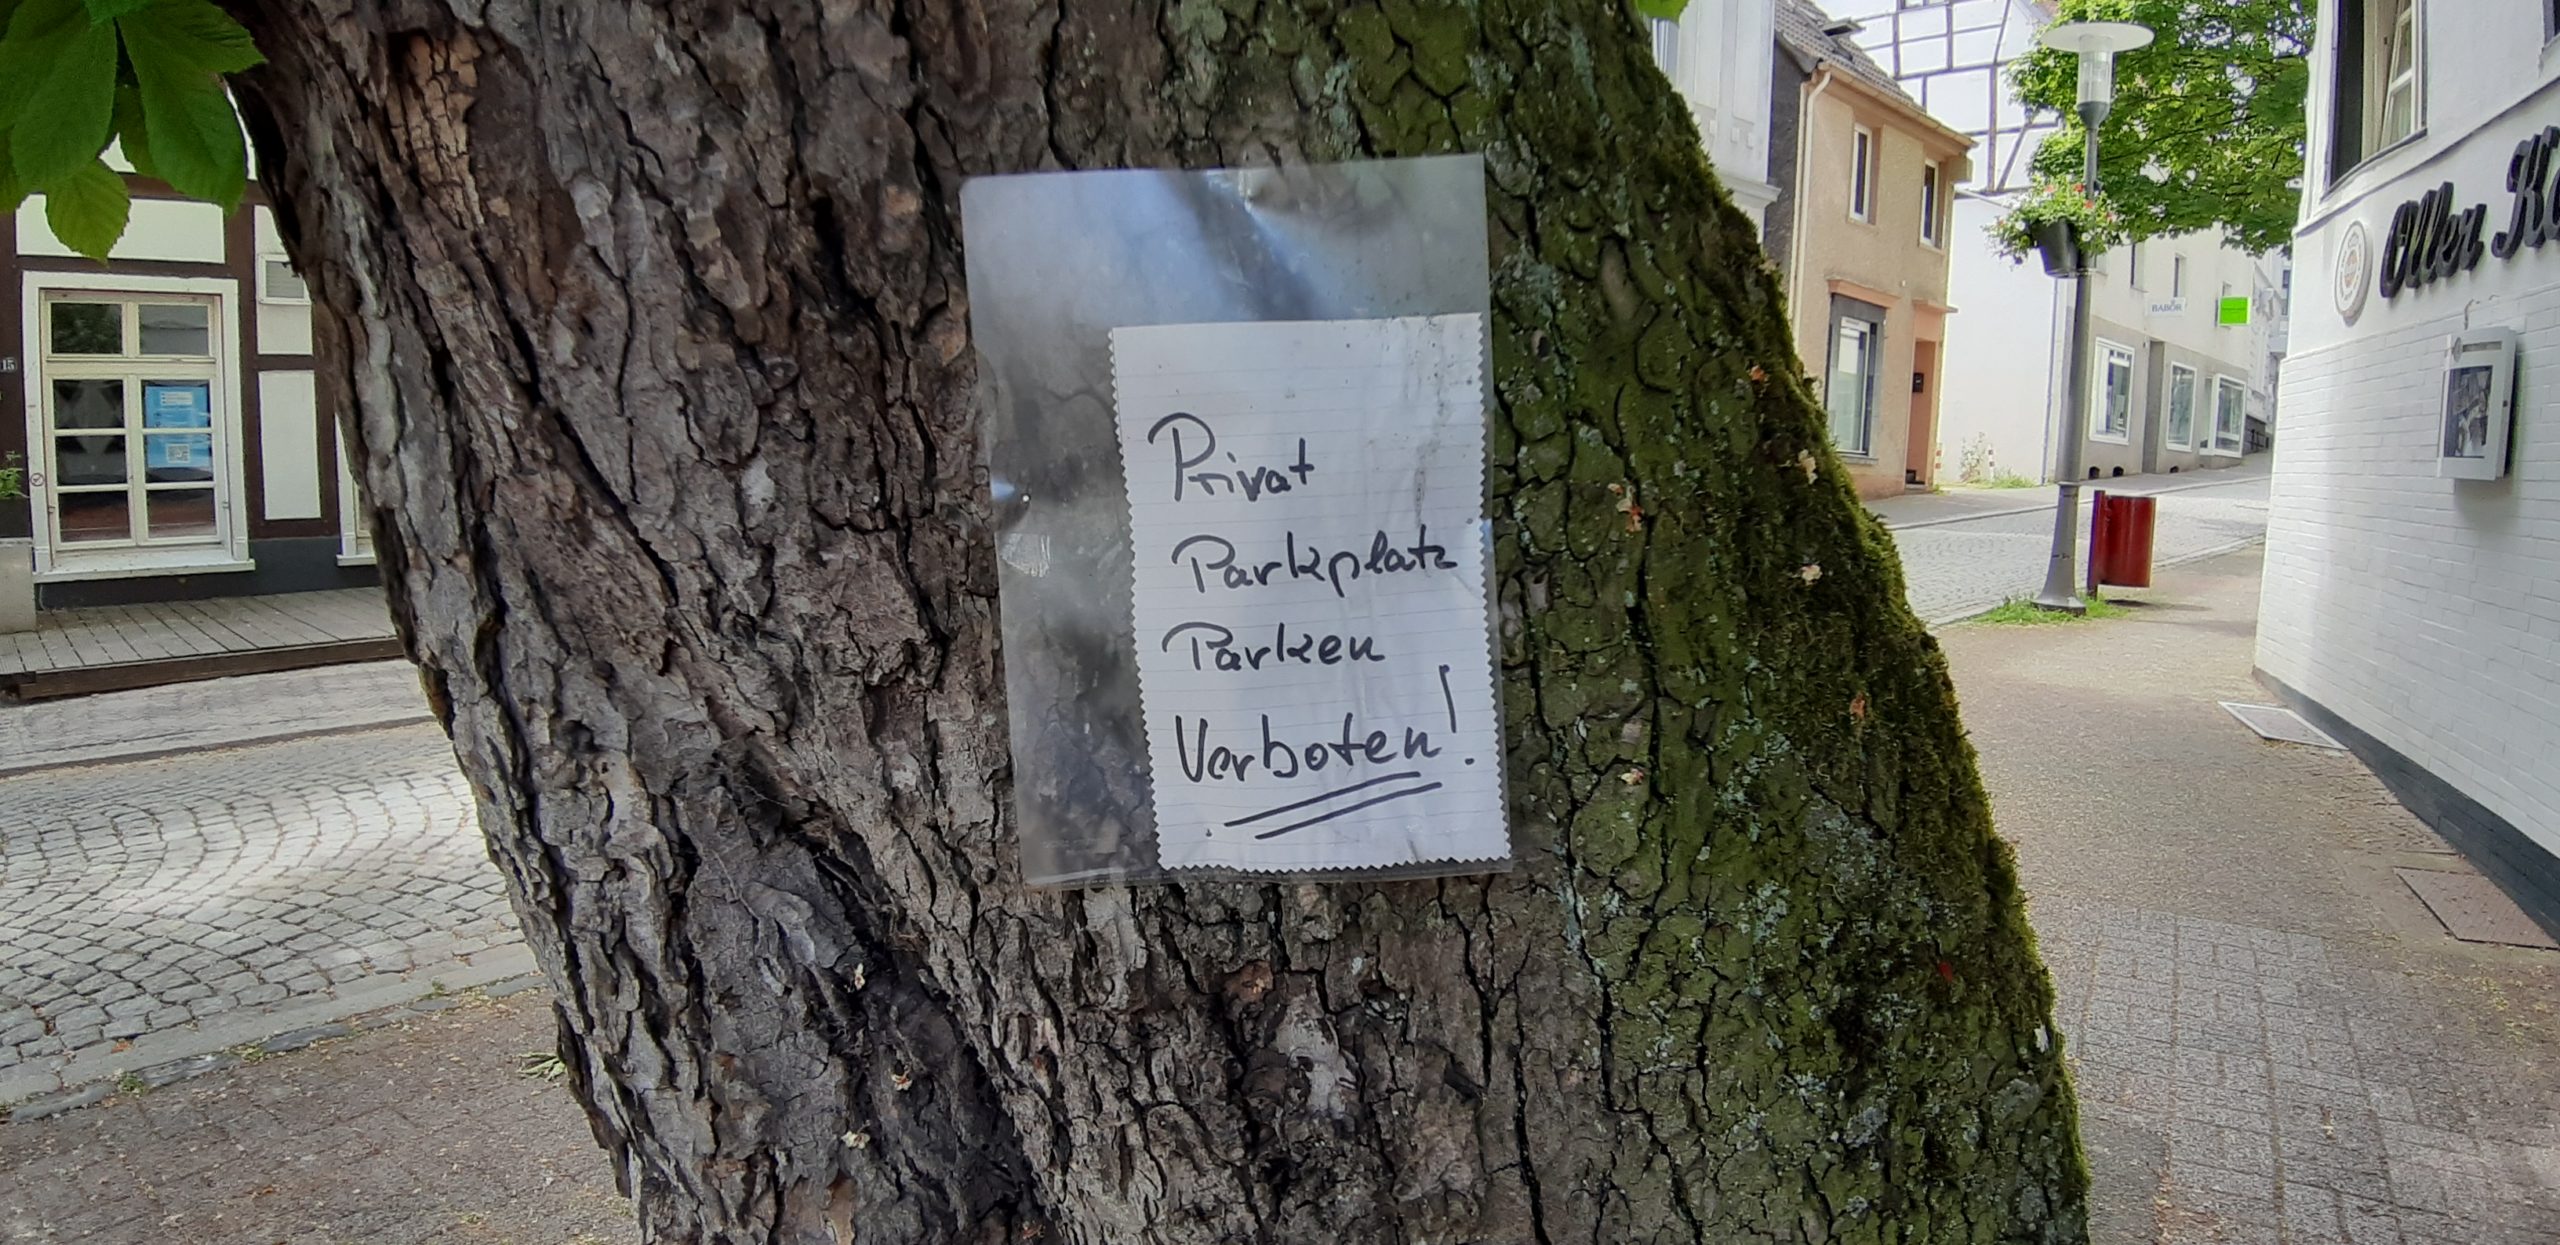 Privat
Parkplatz
Parken
Verboten!
Oller K
BABOR
15